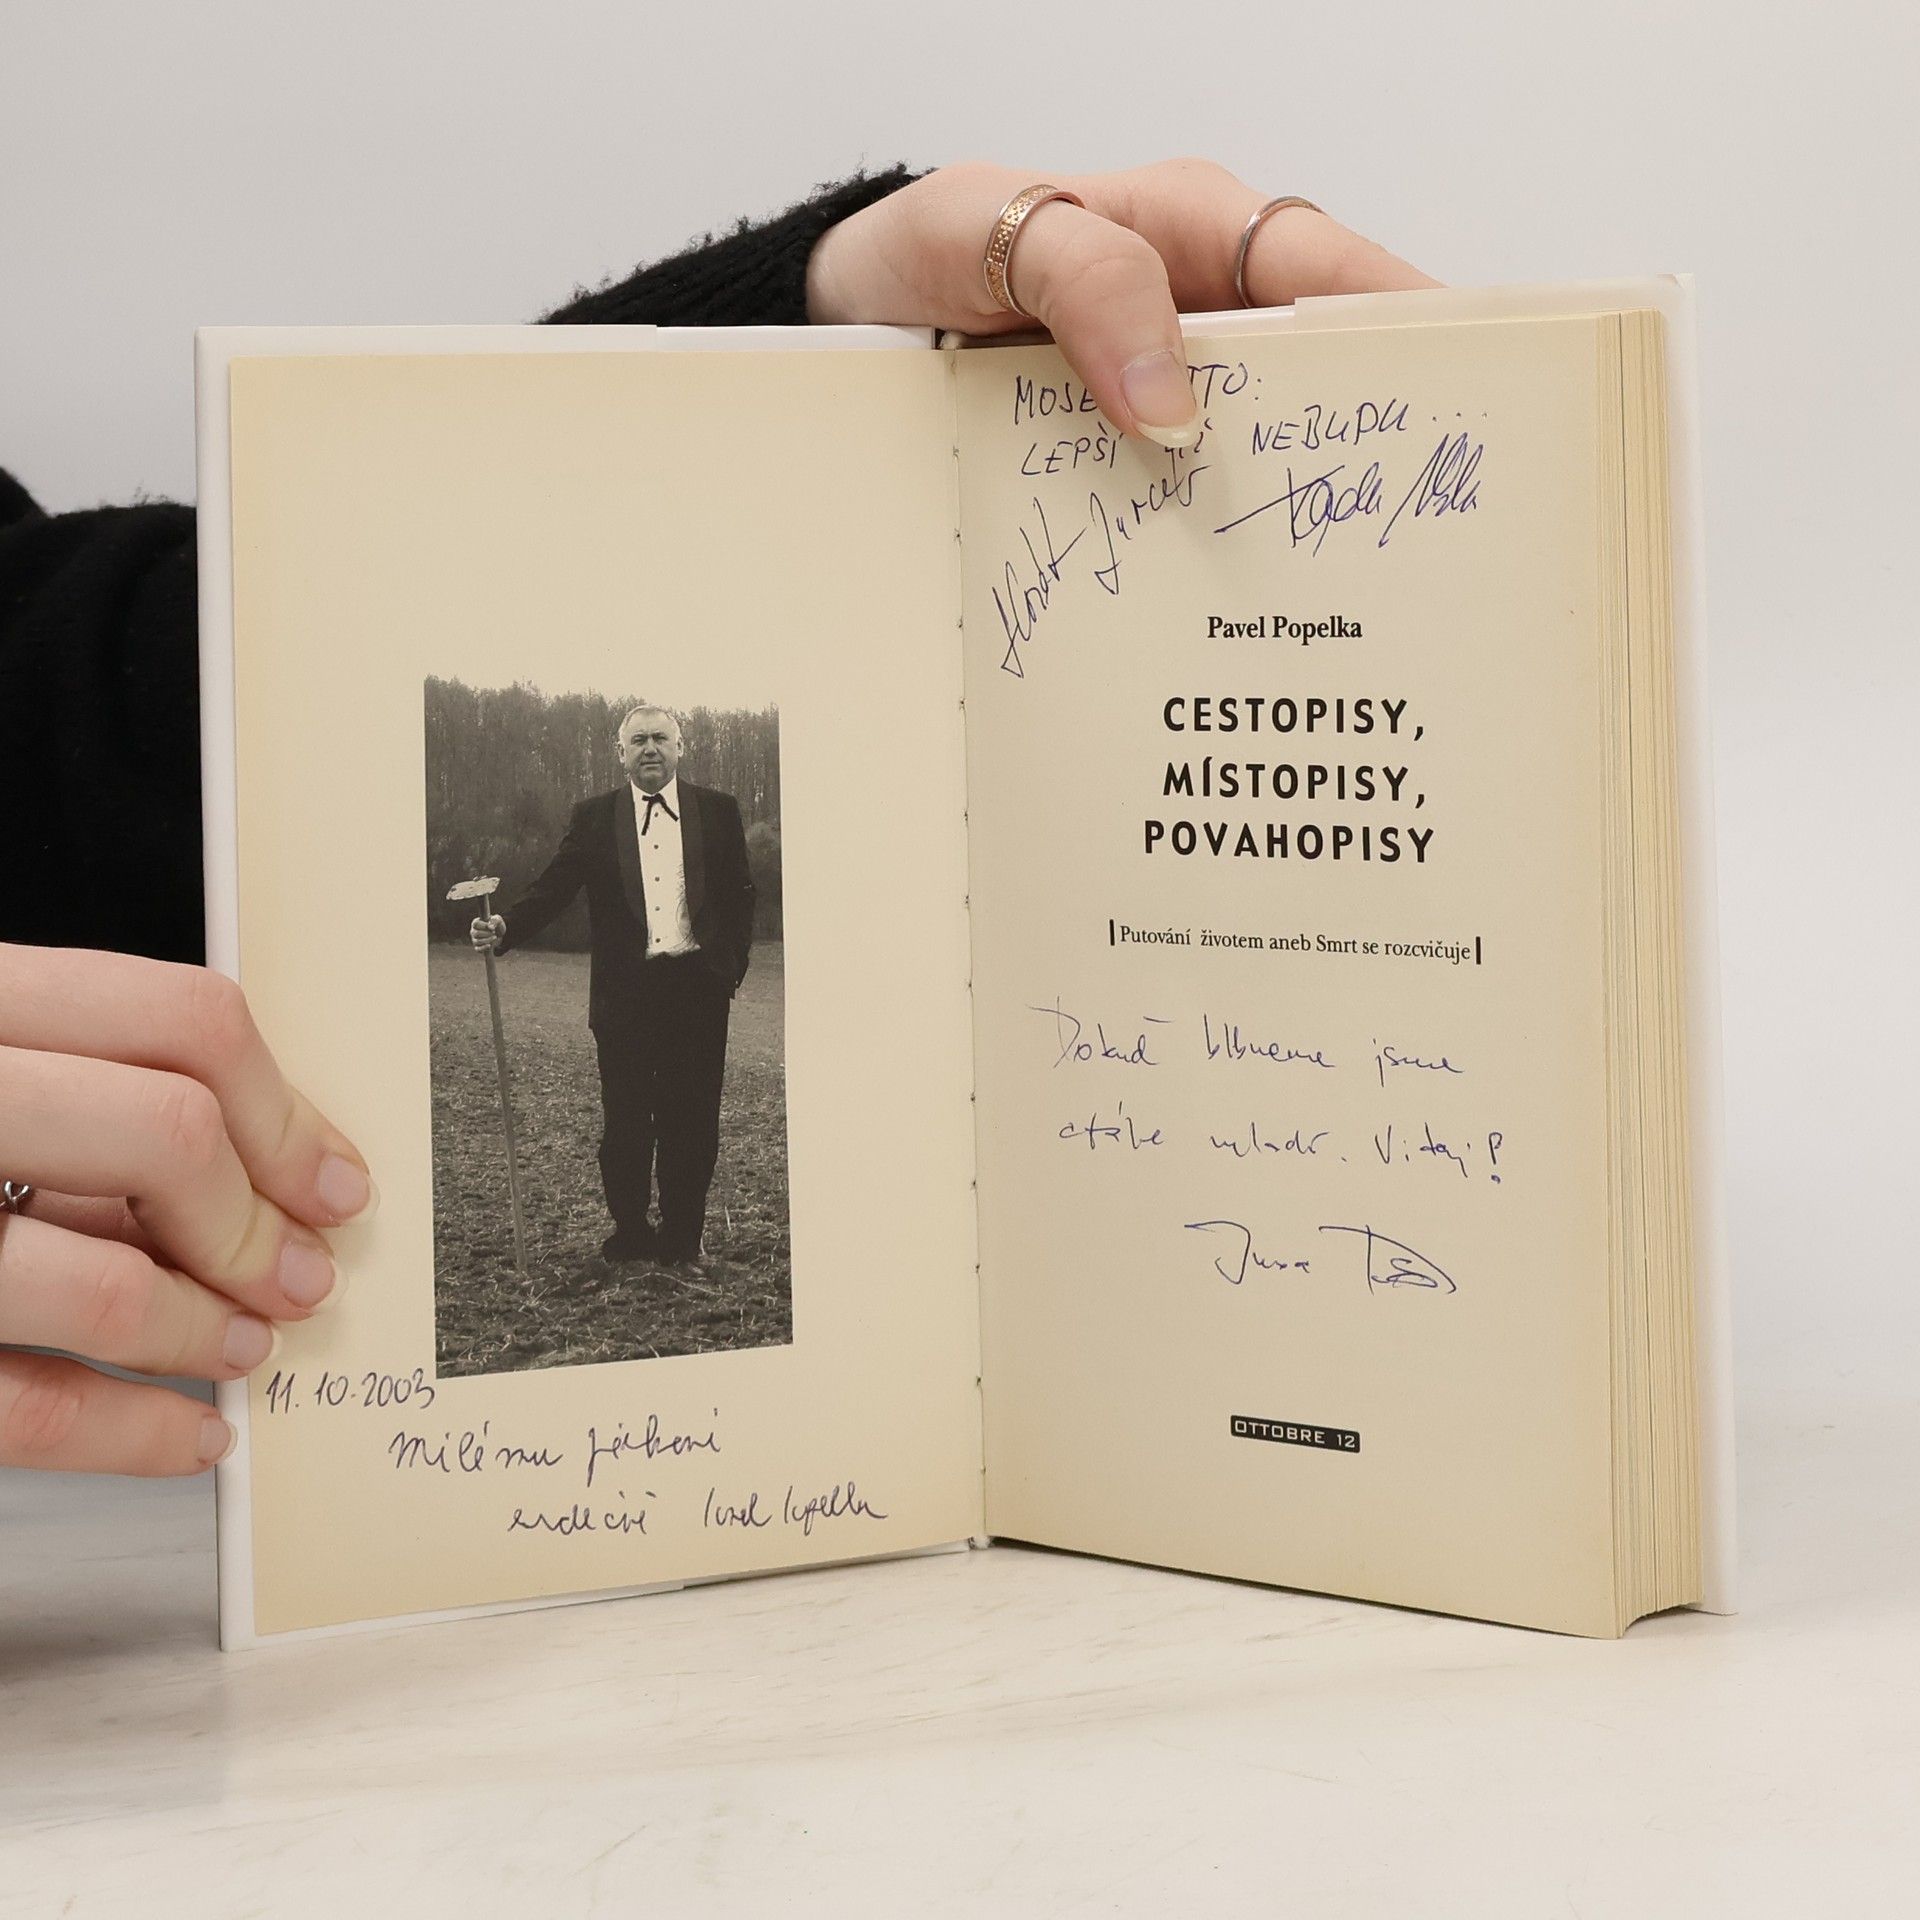 11. 10. 2003
Milému
srdečně Pavel Popelka
TTO:
LEPŠÍ NEBUDU...
Horák
Pavel Popelka
CESTOPISY,
MÍSTOPISY,
POVAHOPISY
Putování životem aneb Smrt se rozcvičuje
Dokud blbneme jsme
stále mladí. Vítej!
OTTOBRE 12